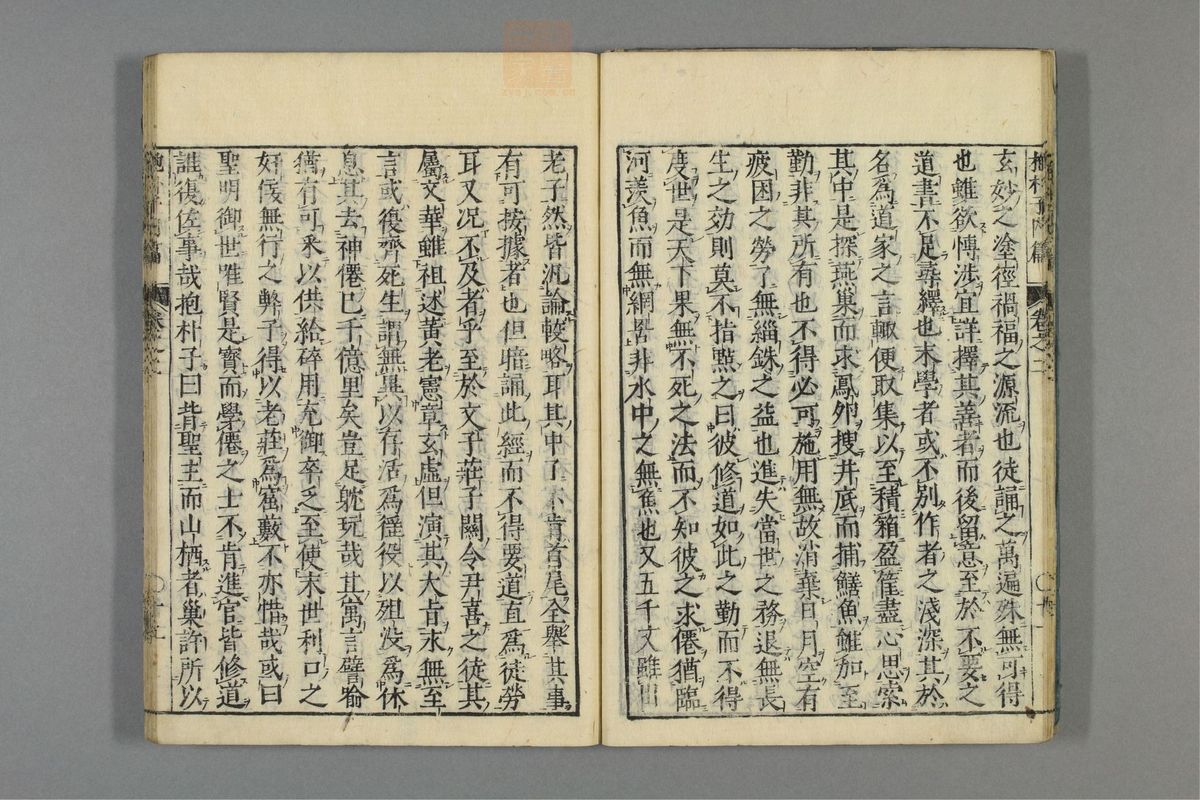 玄妙之塗徑禍福之源流也徒誦之萬遍殊無可得
也雖欲博渉宜詳擇其善者而後留意至於不要之
道書不足尋繹也末學者或不別作者之淺深其於
名爲道家之言輙便取集以至積箱盈筐盡心思索
其中是探燕巢而求鳳卵捜井底而捕鱔魚雖加至
勤非其所有也不得必可施用無故消棄日月空有
疲困之勞了無緇銖之益也進失當世之務退無長
生之効則莫不指㸃之曰彼修道如此之勤而不得
度世是天下果無不死之法而不知彼之求僊猶臨
河羡魚而無網罟非水中之無魚也又五千文雖出
老子然皆汎論較略耳其中了不肯首尾全舉其事
有可按據者也但暗誦此經而不得要道直爲徒勞
耳又况不及者乎至於文子莊子關令尹喜之徒其
屬文華雖祖述黃老憲章玄虛但演其大㫖永無至
言或復齊死生謂無異以存活爲徭役以殂歿爲休
息其去神僊已千億里矣豈足躭玩哉其寓言譬喻
猶有可采以供給碎用充御卒乏至使末世利口之
奸佞無行之弊子得以老莊爲窟藪不亦惜哉或曰
聖明御世唯賢是寳而學僊之士不肯進官皆修道
誰復佐事哉抱朴子曰昔聖主而山栖者巢許所以